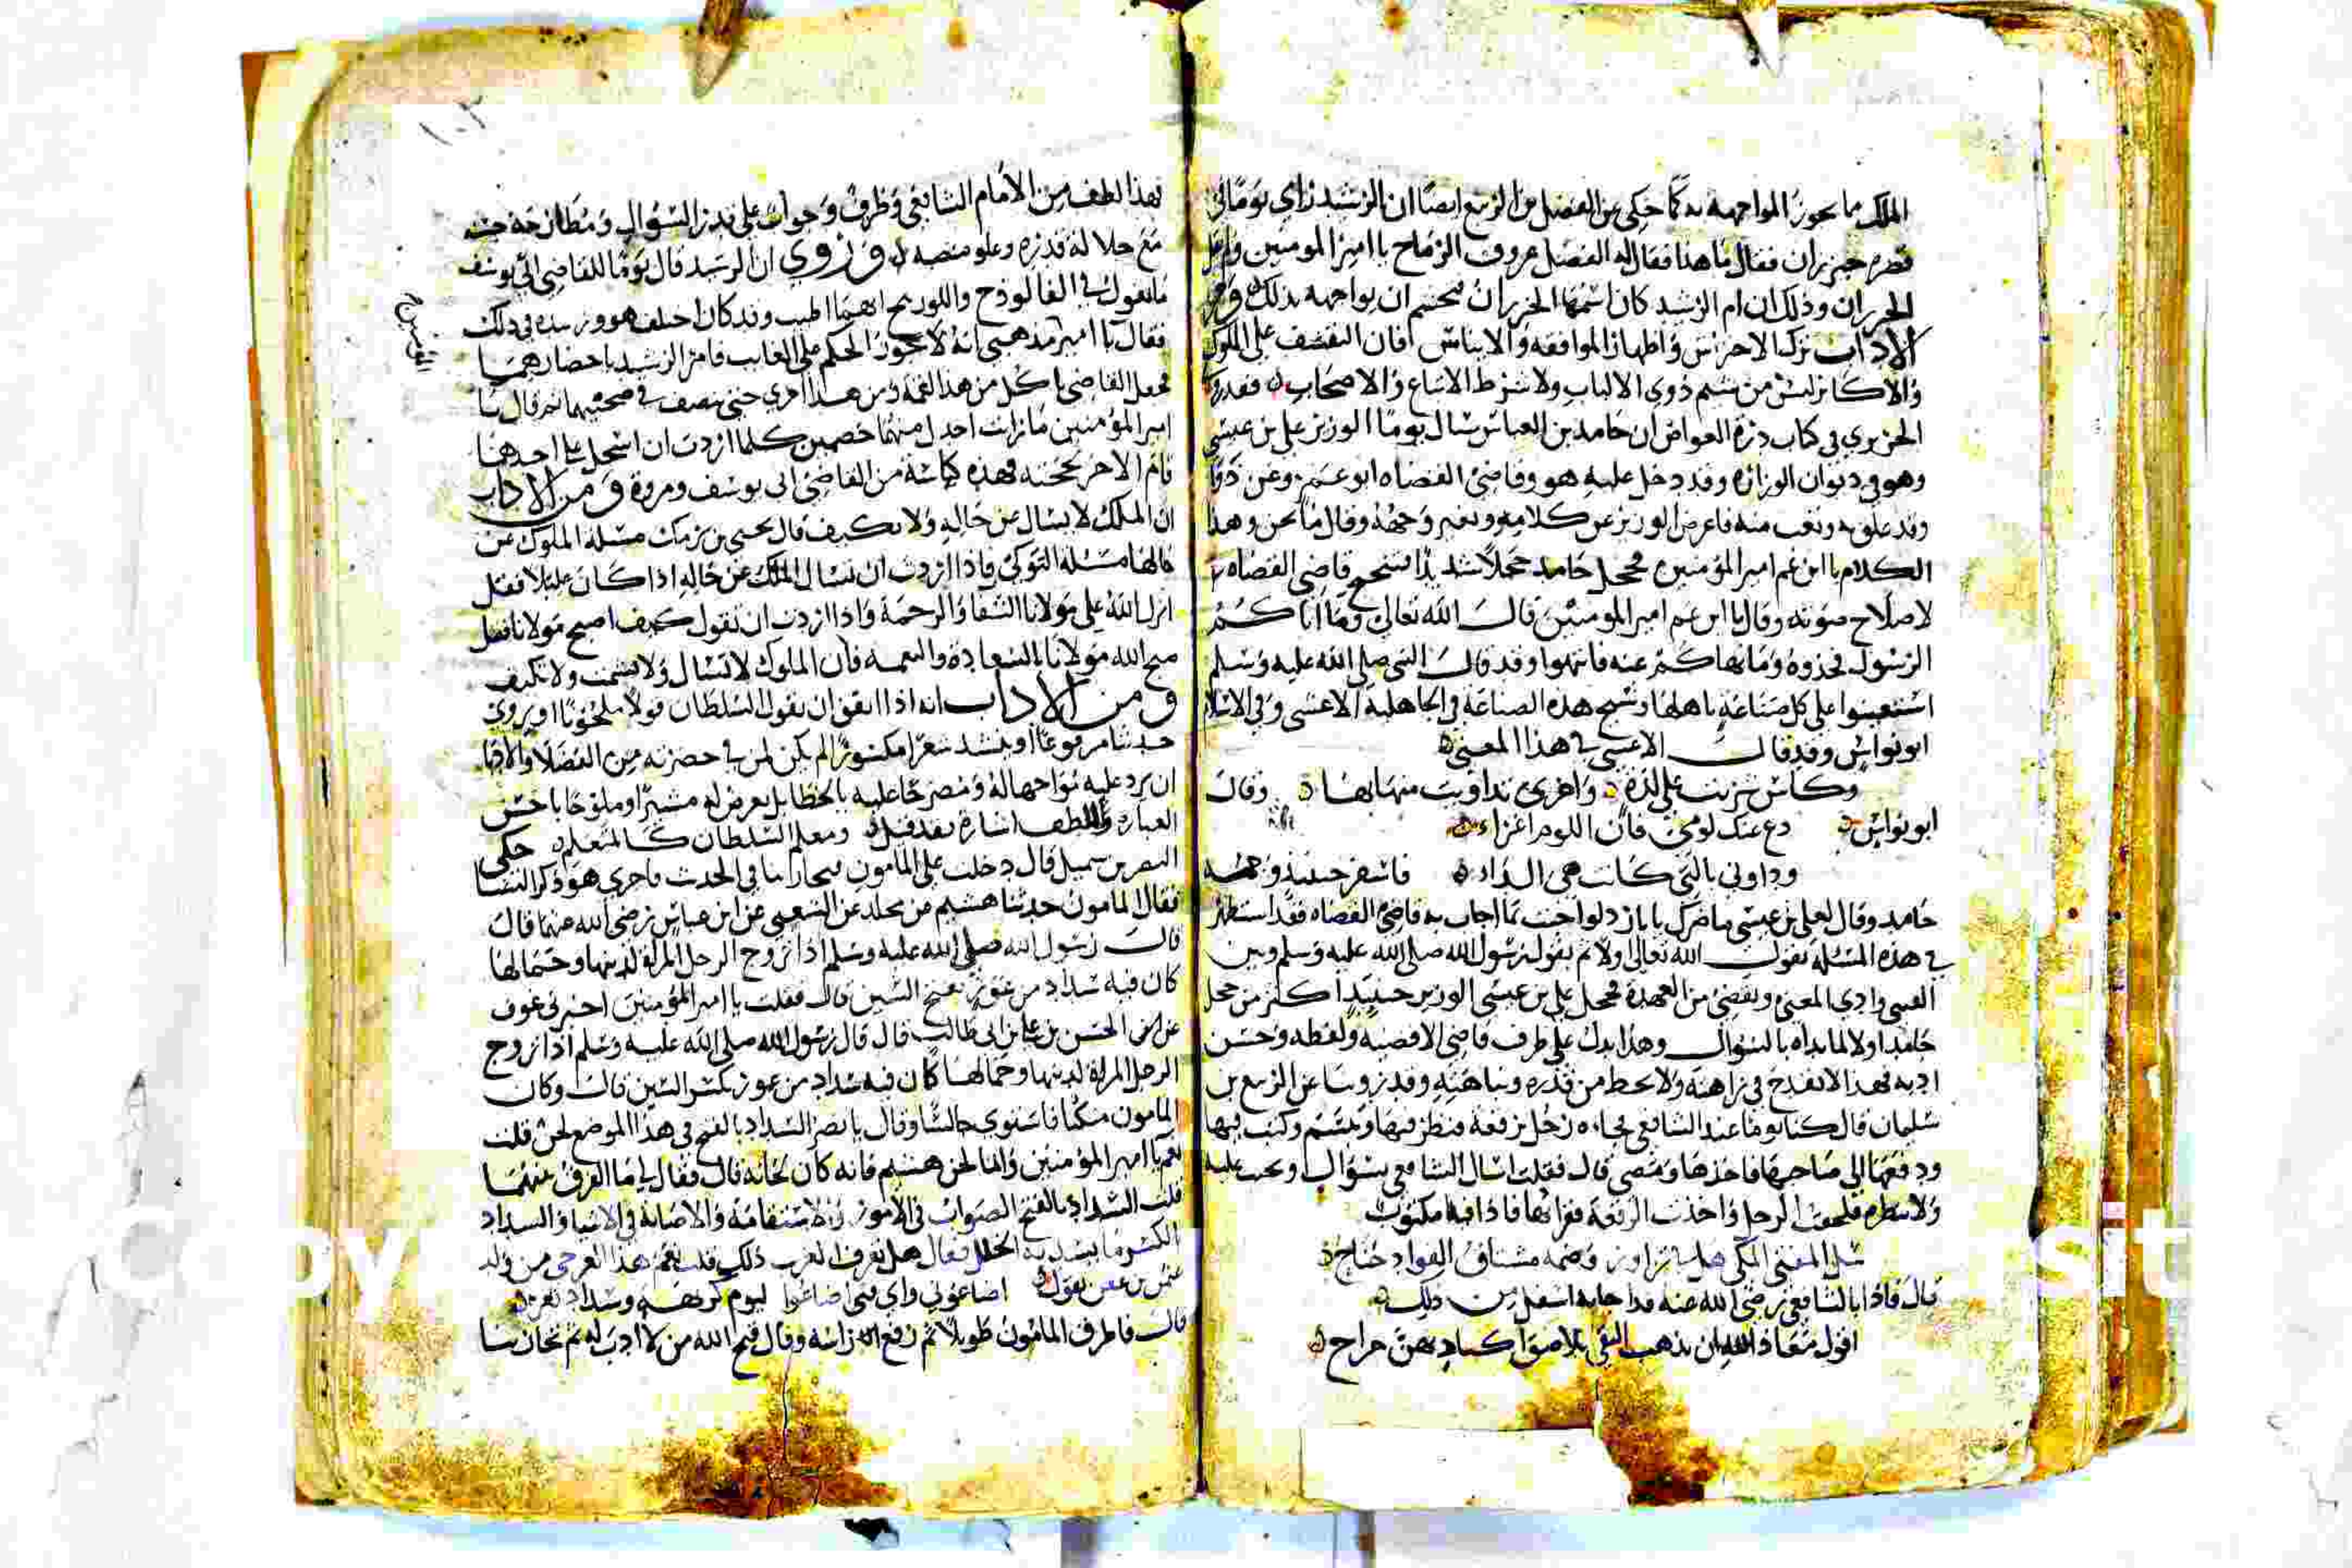 الملك ما يجوز المواجهة به كما حكي عن الفضل بن الربيع ايضا ان الرشيد راي يوما في
قصره خيزران فقال ما هذا فقال له الفضل عروق الرماح يا امير المومنين ولم يقل
الخيزران وذلك ان ام الرشيد كان اسمها الخيزران فاحتشم ان يواجهه بذلك ومن
الاداب ترك الاحتراس واظهار الموافقة والايناس فان التقشف على الملوك
والاكابر ليس من شيم ذوي الالباب ولا شرط الاتباع والاصحاب فقد روى
الحريري في كتاب درة الغواص ان حامد بن العباس سال يوما الوزير علي بن عيسى
وهو في ديوان الوزارة وقد دخل عليه هو وقاضي القضاه ابو عمر وعن دوا
وقد علق به وتعب منه فاعرض الوزير عن كلامه وتغير وجهه وقال ما نحن وهذا
الكلام يا ابن عم امير المؤمنين فخجل حامد خجلا شديدا فتنحنح قاضي القضاه
لاصلاح صوته وقال يا ابن عم امير المومنين قال الله تعالى وما اتاكم
الرسول فخذوه وما نهاكم عنه فانتهوا وقد قال النبي صلى الله عليه وسلم
استعينوا على كل صناعة باهلها وشيخ هذه الصناعة في الجاهلية الاعشى وفي الاسلام
ابو نواس وقد قال الاعشى في هذا المعنى
وكاس شربت على لذة واخرى تداويت منها بها وقال
ابو نواس دع عنك لومي فان اللوم اغراء
وداوني بالتي كانت هي الداء فاسفر حينيذ وجهه
حامد وقال لعلي بن عيسى ما ضرك يا بارد لو اجبت بما اجاب به قاضي القضاه فقد استظهر
في هذه المسئلة بقول الله تعالى ولا ثم بقول رسول الله صلى الله عليه وسلم وبين
الفتيا وادى المعنى وتفصى من العهدة فخجل علي بن عيسى الوزير حينيذ اكثر من خجل
حامد اولا لما بداه بالسؤال وهذا يدل على ظرف قاضي الاقضيه ولفظه وحسن
ادبه فهذا لا يقدح في نزاهته ولا يحط من قدره ونباهته وقد روينا عن الربيع بن
سليمان قال كنا يوما عند الشافعي فجاءه رجل برقعة فنظر فيها وتبسم وكتب فيها
ودفعها الى صاحبها فاخذها ومضى قال فقلت اسال الشافعي بسؤال ونجب عليه
ولا ننظره فلحقت الرجل واخذت الرقعة فقراتها فاذا فيها مكتوب
سل المفتي المكي هل في تزاور وضمة مشتاق الفواد جناح
قال فاذا بالشافعي رضي الله عنه قد اجابه اسفل من ذلك
اقول معاذ الله ان يذهب التقى تلاصق اكباد بهن جراح
فهذا لطف من الامام الشافعي وظرف وجواب على قدر السؤال ومطارحة حسنه
مع جلالة قدره وعلو منصبه وروي ان الرشيد قال يوما للقاضي ابي يوسف
ما تقول في الفالوذج واللوزينج ايهما اطيب وقد كان اختلف هو وزبيده في ذلك
فقال يا امير مذهبي انه لا يجوز الحكم على الغايب فامر الرشيد باحضارهما
المومنين صح
فجعل القاضي ياكل من هذا لقمة ومن هذا اخرى حتى نصف في صحنيهما ثم قال يا
امير المؤمنين ما رايت اجدل منهما خصمين كلما اردت ان اسجل على احدهما
قام الاخر بحجته فهذه كياسة من القاضي ابي يوسف ومروة ومن الاداب
ان الملك لا يسال عن حاله ولا يكيف قال يحيى بن برمك مسئلة الملوك عن
حالها مسئلة النوكى فاذا اردت ان تسال الملك عن حاله اذا كان عليلا فقل
انزل الله على مولانا الشفا والرحمة واذا اردت ان تقول كيف اصبح مولانا فقل
صبح الله مولانا بالسعادة والنعمه فان الملوك لا تسال ولا تشمت ولا تكيف
ومن الاداب انه اذا اتفق ان يقول السلطان قولا ملحونا او يروي
حديثا مرفوعا او ينشد شعرا مكسورا لم يكن لمن في حضرته من الفضلا والادبا
ان يرد عليه مواجها له ومصرحا عليه بالخطا بل يعرض له مشيرا وملوحا باحسن
العباره والطف اشارة فقد قيل ومعلم السلطان كالمتعلم حكى
النضر بن شميل قال دخلت على المامون فتجارينا في الحديث فاجرى هو ذكر النسا
فقال المامون حدثنا هشيم عن مجلد عن الشعبي عن ابن عباس رضي الله عنهما قال
قال رسول الله صلى الله عليه وسلم اذا تزوج الرجل المراة لدينها وجمالها
كان فيه سداد من عوز بفتح السين قال فقلت يا امير المؤمنين اخبرني عوف
عن الحسن بن علي بن ابي طالب قال قال رسول الله صلى الله عليه وسلم اذا تزوج
الرجل المراة لدينها وجمالها كان فيه سداد من عوز بكسر السين قال وكان
المامون متكئا فاستوى جالسا وقال يا نضر السداد بالفتح في هذا الموضع لحن قلت
نعم يا امير المؤمنين وانما لحن هشيم فانه كان لحانه قال فقال لي ما الفرق بينهما
قلت السداد بالفتح الصواب في الامور والاستقامة والاصابة في الاشيا والسداد
بالكسر ما يسد به الخلل فقال هل تعرف العرب ذلك قلت نعم هذا العرجي من ولد
عثمن بن عفن يقول اضاعوني واي فتى اضاعوا ليوم كريهة وسداد ثغر
قال فاطرق المامون طويلا ثم رفع راسه وقال قبح الله من لا ادب له ثم تجارينا